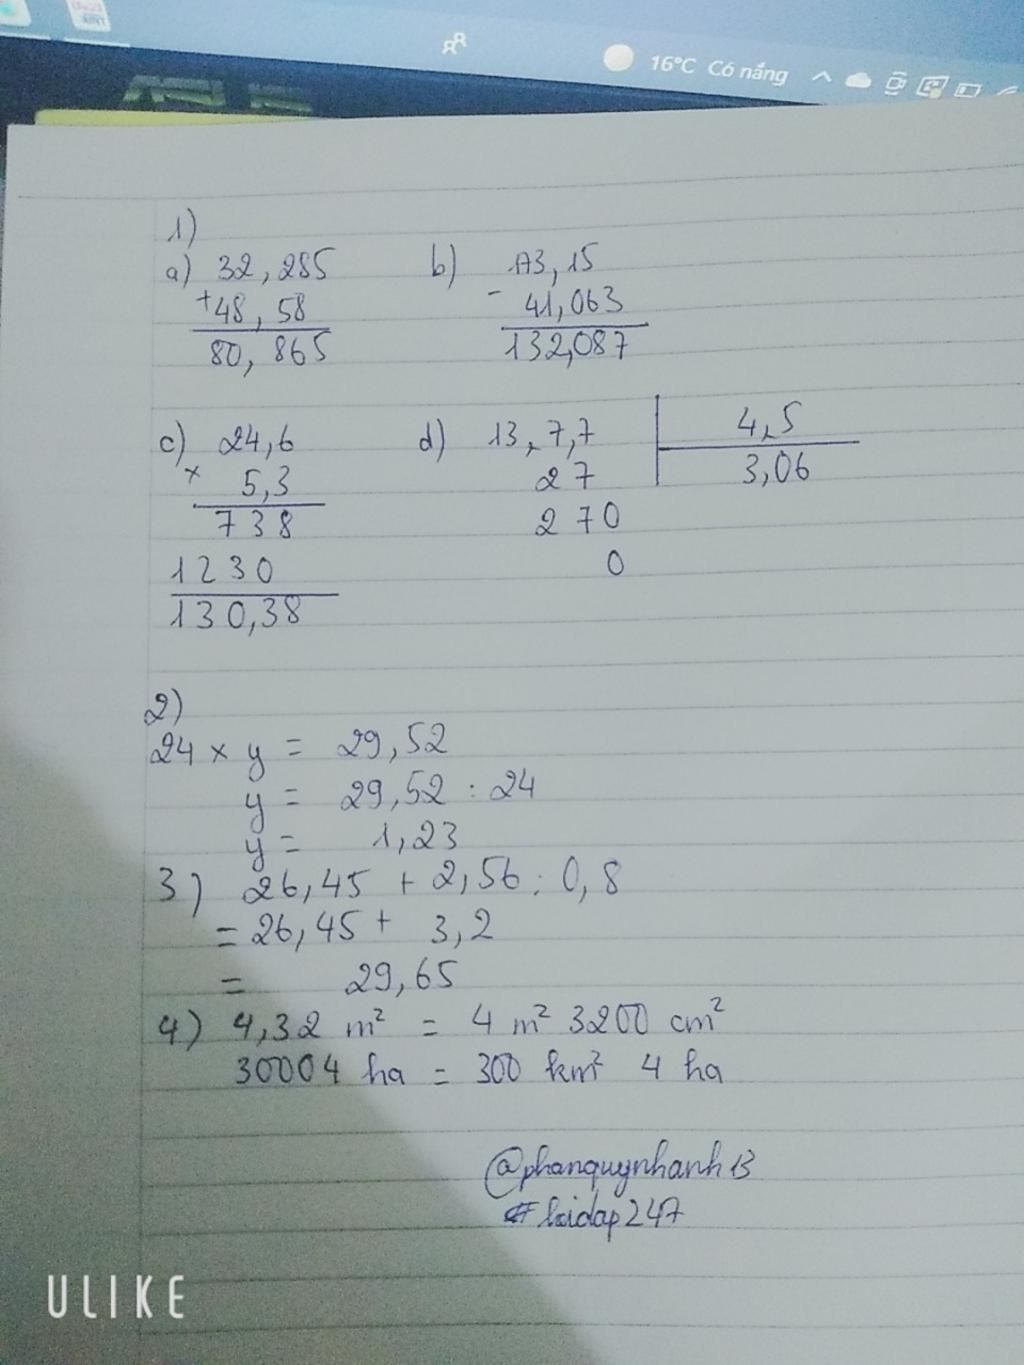 16°C Có nắng
1)
a) 32,285 b) 173,15
+ 48,58 - 41,063
80,865 132,087
c) 24,6 d) 13,7,7 4,5
x 5,3 27 3,06
738 270
1230 0
130,38
2)
24 x y = 29,52
y = 29,52 : 24
y = 1,23
3) 26,45 + 2,56 : 0,8
= 26,45 + 3,2
= 29,65
4) 4,32 m² = 4 m² 3200 cm²
30004 ha = 300 km² 4 ha
@phanquynhanh13
#hoidap247
ULIKE